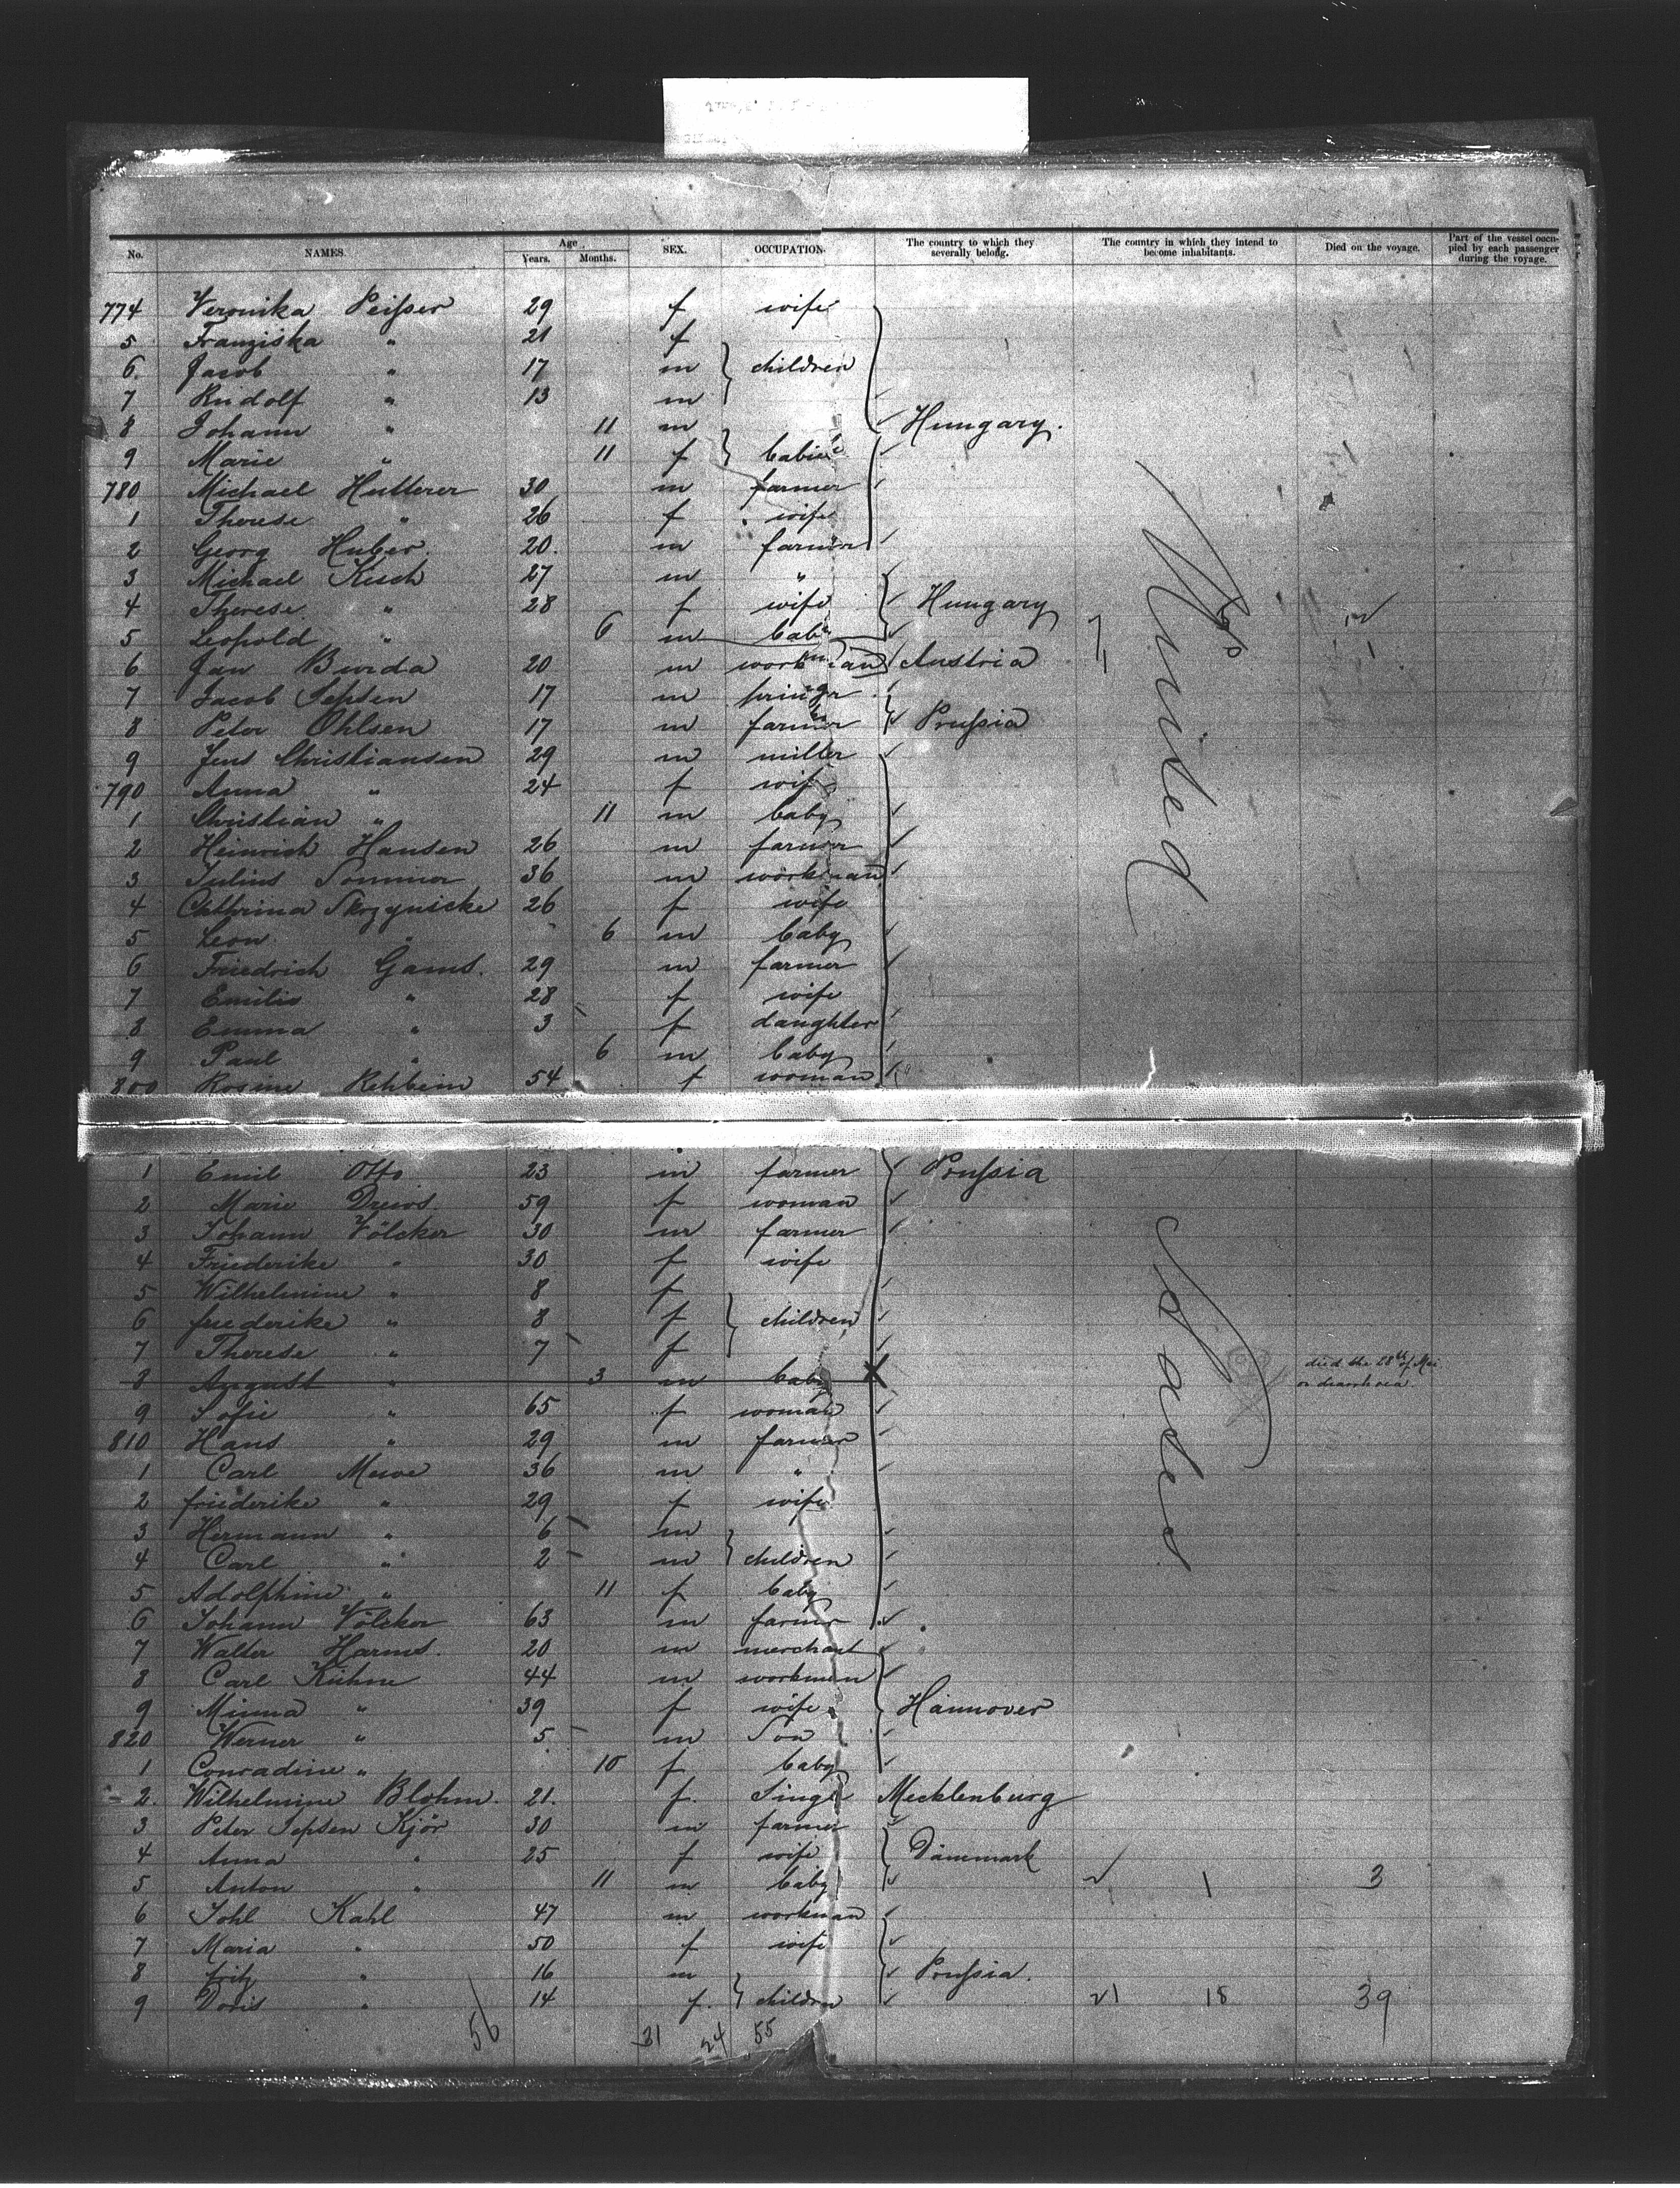 No. NAMES. Age Years. Months. SEX. OCCUPATION. The country to which they severally belong. The country in which they intend to become inhabitants. Died on the voyage. Part of the vessel occupied by each passenger during the voyage.
774 Veronika Peißer 29 f wife
5 Franziska " 21 f
6 Jacob " 17 m children
7 Rudolf " 13 m
8 Johann " 11 m Hungary.
9 Marie " 11 f babies
780 Michael Hutterer 30 m farmer
1 Therese " 26 f wife
2 Georg Huber 20. m farmer
3 Michael Kisch 27 m "
4 Therese " 28 f wife Hungary
5 Leopold " 6 m baby
6 Jan Burda 20 m workman Austria
7 Jacob Jepsen 17 m
8 Peter Ohlsen 17 m farmer Prußia
9 Jens Christiansen 29 m miller
790 Anna " 24 f wife
1 Christian " 11 m baby
2 Heinrich Hansen 26 m farmer
3 Julius Sommer 36 m workman
4 Cathrina Skrzynicke 26 f wife
5 Leon " 6 m baby
6 Friedrich Gams. 29 m farmer
7 Emilie " 28 f wife
8 Emma " 3 f daughter
9 Paul " 6 m baby
800 Rosine Rehbein 54 f woman
United
1 Emil Otto 23 m farmer Prußia
2 Marie Drews. 59 f woman
3 Johann Völcker 30 m farmer
4 Friederike " 30 f wife
5 Wilhelmine " 8 f
6 friederike " 8 f children
7 Therese " 7 f
8 August " 3 m baby died the 28th of Mai
on diarrhoea
9 Sofie " 65 f woman
810 Hans " 29 m farmer
1 Carl Mewe 36 m "
2 friederike " 29 f wife
3 Hermann " 6 m
4 Carl " 2 m children
5 Adolphine " 11 f baby
6 Johann Völcker 63 m farmer
7 Walter Harms. 20 m merchant
8 Carl Kühne 44 m workman
9 Minna " 39 f wife Hannover
820 Werner " 5 m Son
1 Conradine " 10 f baby
2. Wilhelmine Blohm. 21. f. Single Mecklenburg
3 Peter Jepsen Kjör 30 m farmer
4 Anna " 25 f wife Dänemark
5 Anton " 11 m baby 1 3
6 Johl Kahl 47 m workman
7 Maria " 50 f wife
8 fritz " 16 m Prußia.
9 Doris " 14 f. children 21 18 39
States
56 31 24 55